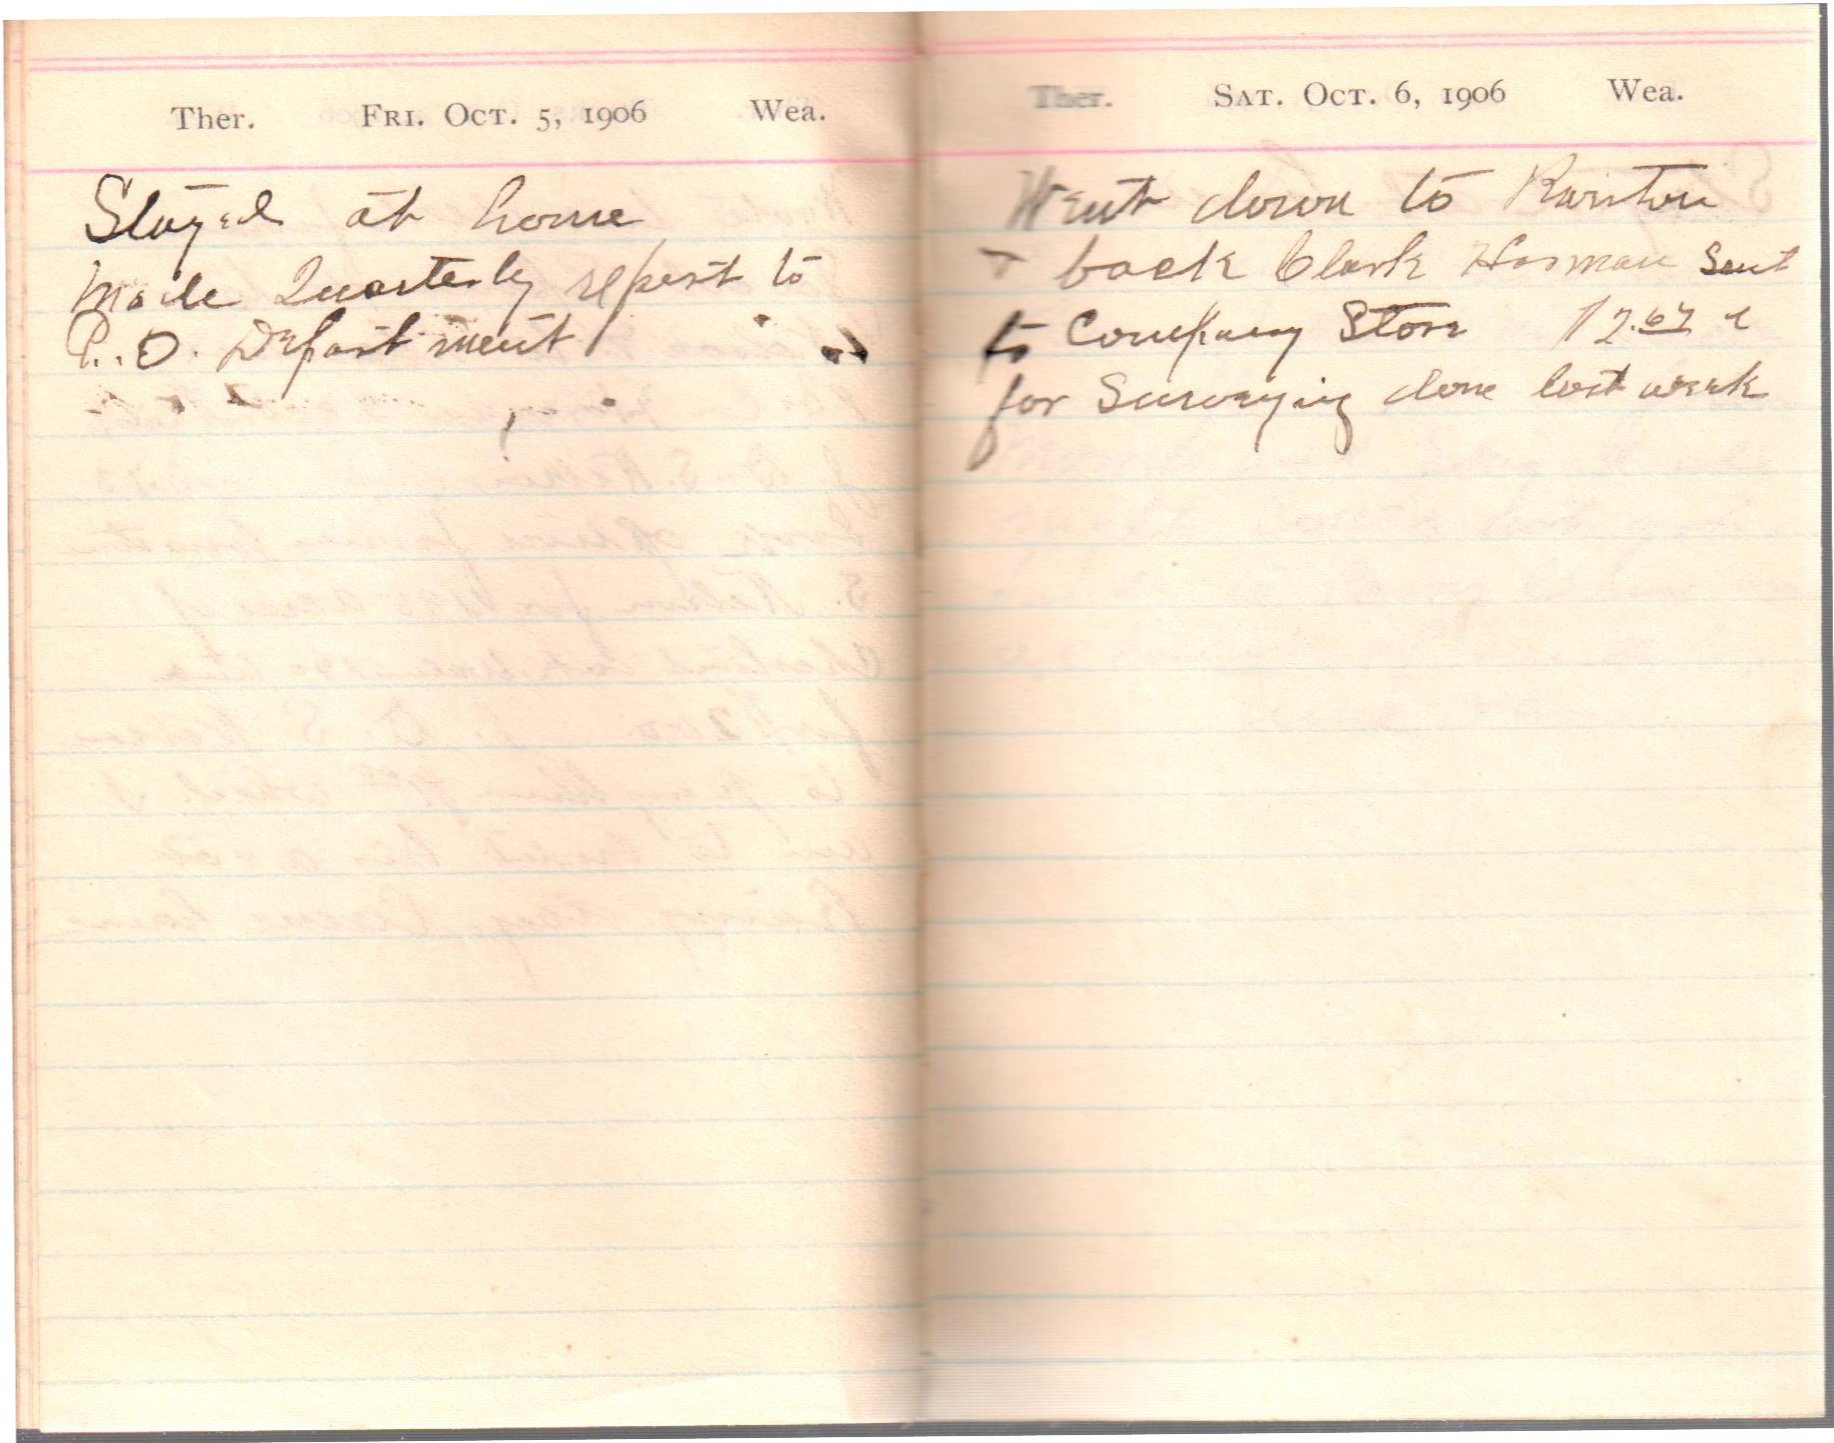 Ther. FRI. OCT. 5, 1906 Wea.
Stayed at home
Made Quarterly report to
P.O. Department
Ther. SAT. OCT. 6, 1906 Wea.
Went down to
& back Clark Harman Sent
to Company Store
for Surveying done last week